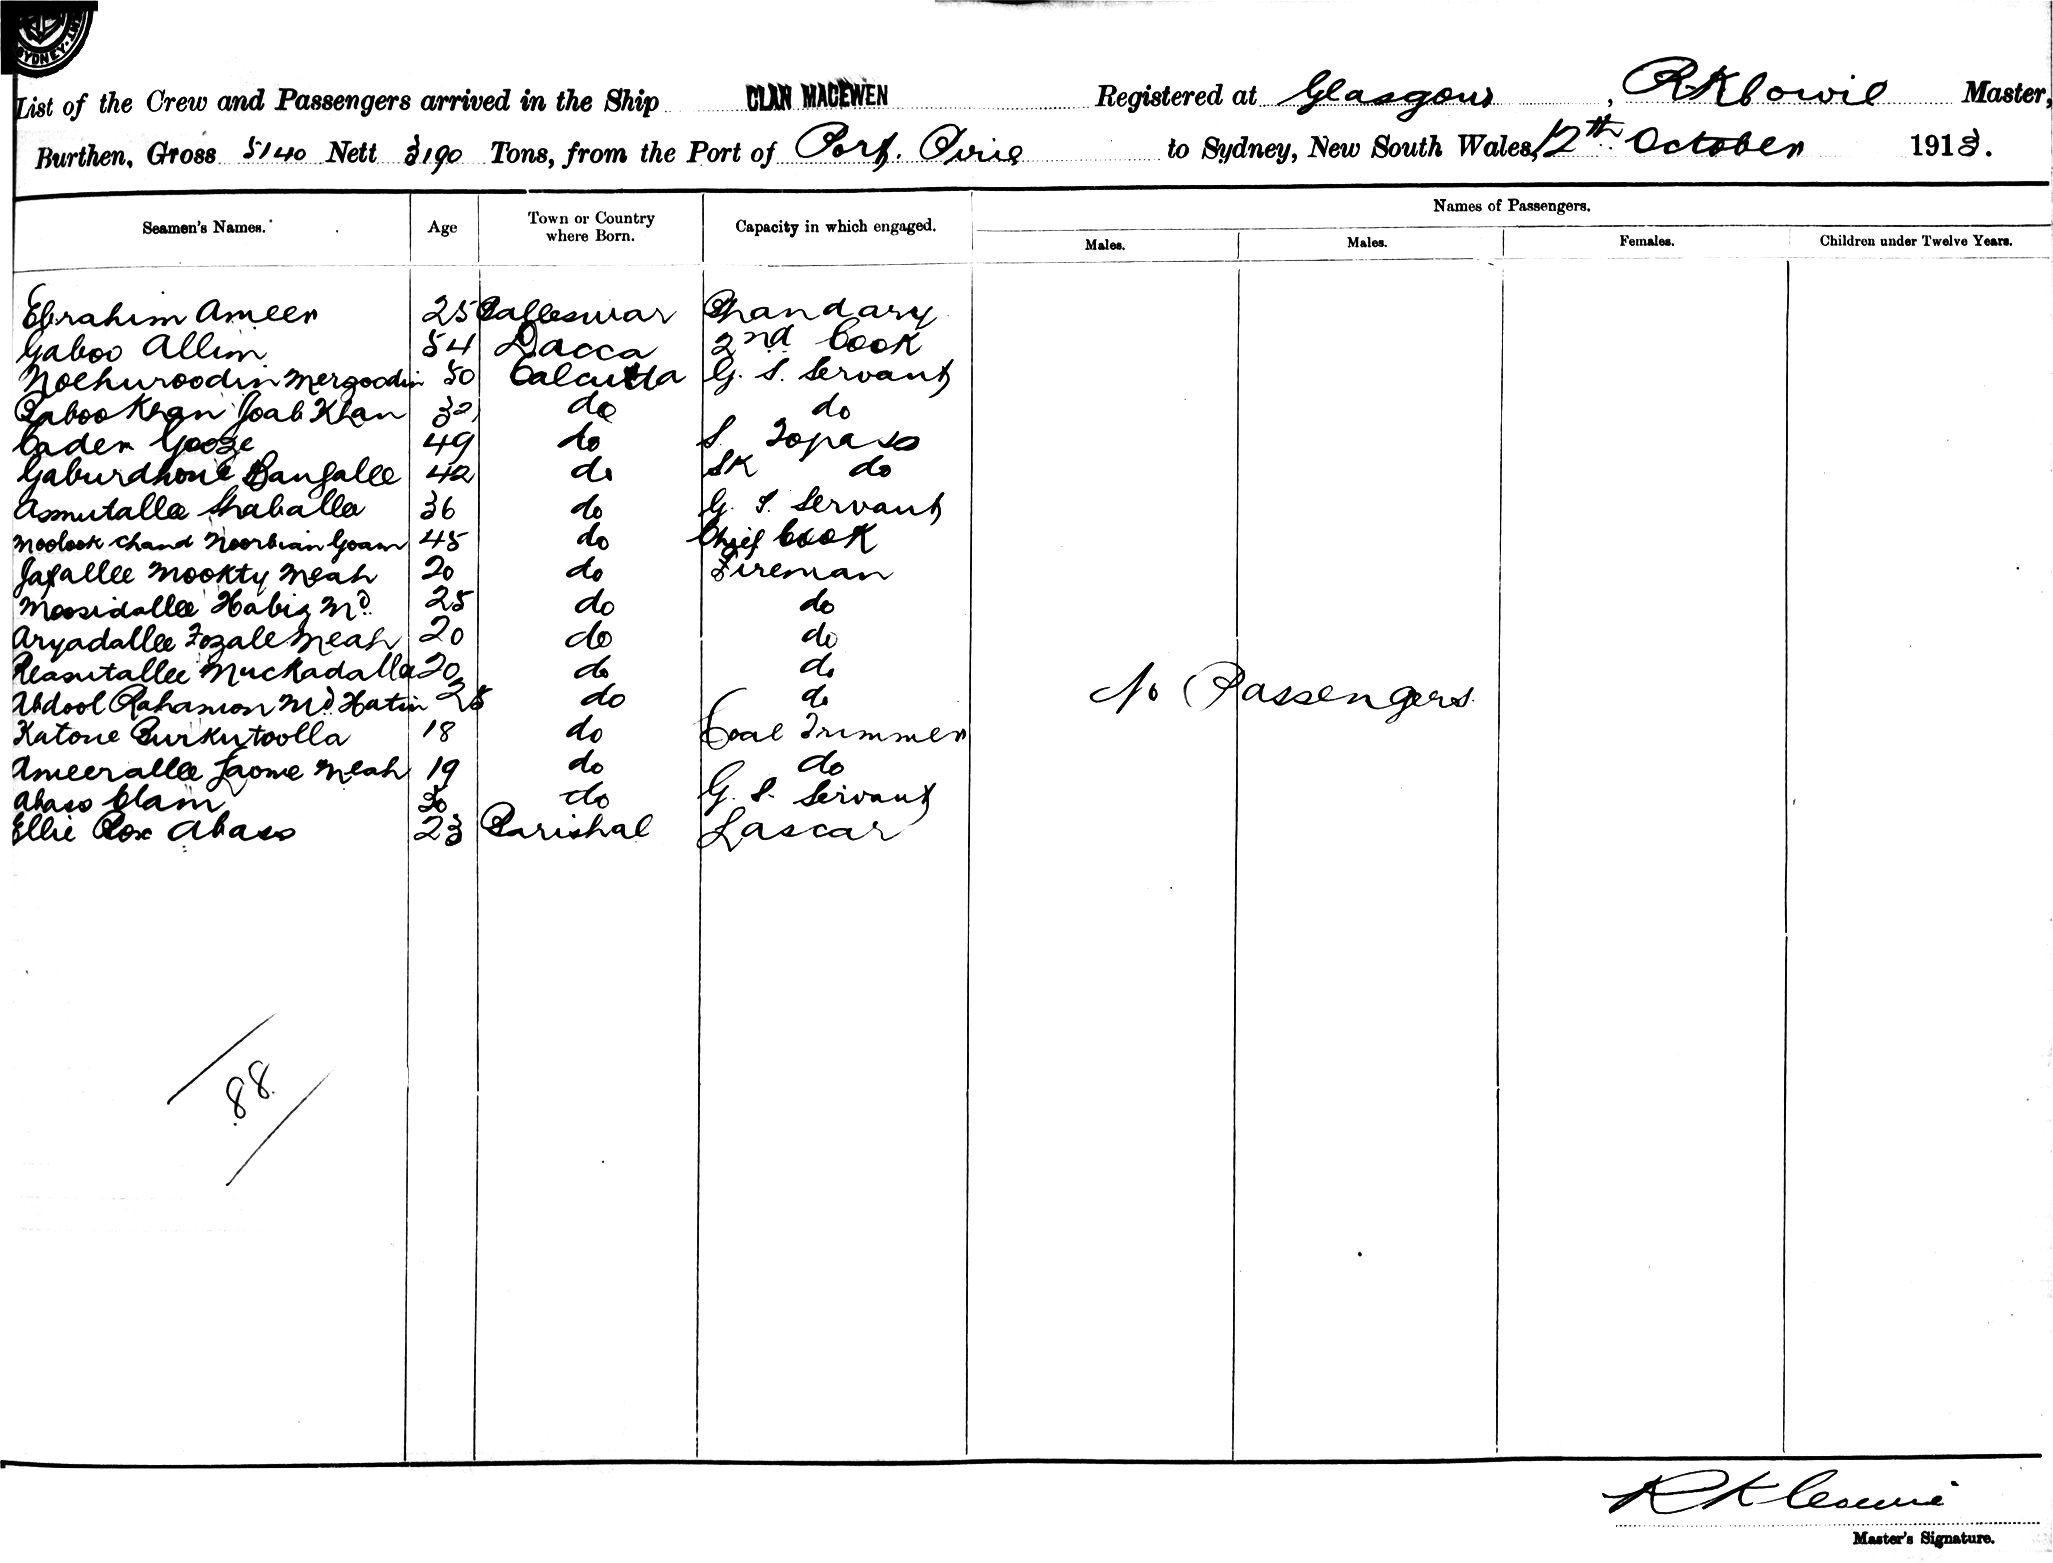 SYDNEY
List of the Crew and Passengers arrived in the Ship CLAN MACEWEN Registered at Glasgow, R K Cowie Master,
Burthen, Gross 5140 Nett 3190 Tons, from the Port of Port. Pirie to Sydney, New South Wales, 12th October 1913.
Names of Passengers.
Seamen's Names. Age Town or Country where Born. Capacity in which engaged. Males. Males. Females. Children under Twelve Years.
Ebrahim Ameen 25 Balleswar Bhandary
Gaboo Allim 54 Dacca 2nd Cook
Noehuroodin Mergoodin 50 Calcutta G. S. Servant
Khan Joab Khan 32 do do
Cader Gooze 49 do S. Topass
Gaburdhone Bangalee 42 do SK do
Asmutallee Shaballa 36 do G. S. Servant
Moolook Chand Noorbian Goam 45 do Chief Cook
Jafallee Mookty Meah 20 do Fireman
Moosidallee Habiz Md. 25 do do
Aryadallee Fozale Meah 20 do do
Reasutallee Muckadalla 20 do do
Abdool Rahamon Md Hatim 25 do do
Katone Burkutoolla 18 do Coal Trimmer
Ameerallee Laome Meah 19 do do
Abass Clam 30 do G. S. Servant
Ellie Box Abass 23 Barishal Lascar
No Passengers.
88
R K Cowie
Master's Signature.